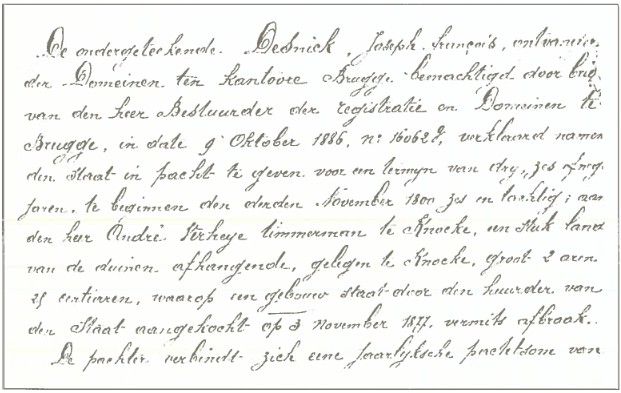 De ondergeteekende Desnick, Joseph, françois, ontvanger
der Domeinen ten kantoore Brugge bemachtigd door brief
van den heer Bestuurder der registratie en Domeinen te
Brugge, in date 9 Oktober 1886, n: 16062 9, verklaard namens
den Staat in pacht te geven voor een termyn van dry, zes of neg.
jaren, te beginnen den derden November 1800 zes en tachtig; aan
den heer André Verheye timmerman te Knocke, en stuk land
van de duinen afhangende, gelegen te Knocke, groot 2 aren
25 centiaren, waarop een gebouw staat door den huurder van
den Staat aangekocht op 3 November 1877, vermits afbraak.
De pachter verbindt zich eene jaarlyksche pachtsom van